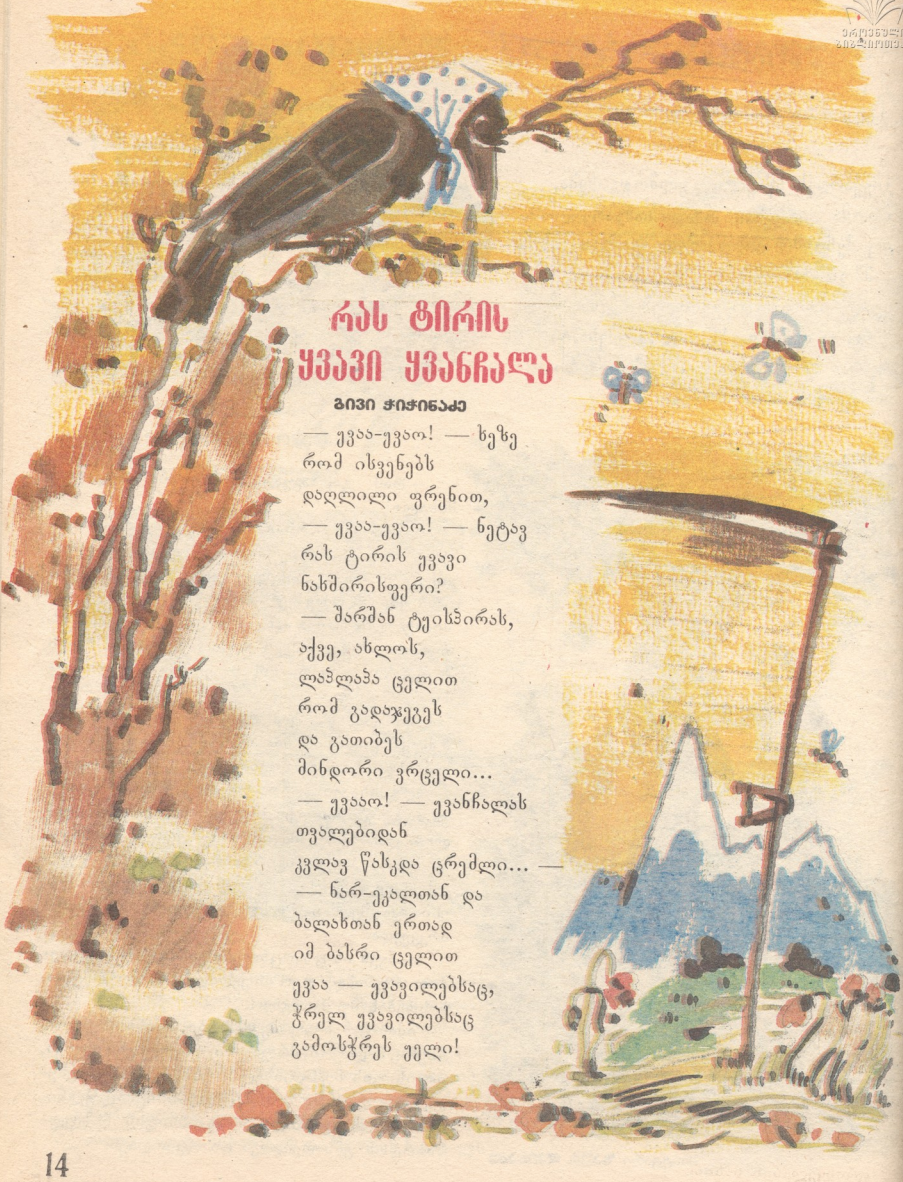 ეროვნული
ბიბლიოთეკა
რას ტირის
ყვავი ყვანჩალა
გივი ჭიჭინაძე
— ყვაა-ყვაო! — ხეზე
რომ ისვენებს
დაღლილი ფრენით,
— ყვაა-ყვაო! — ნეტავ
რას ტირის ყვავი
ნახშირისფერი?
— შარშან ტყისპირას,
აქვე, ახლოს,
ლაპლაპა ცელით
რომ გადაჯეგეს
და გათიბეს
მინდორი ვრცელი...
— ყვააო! — ყვანჩალას
თვალებიდან
კვლავ წასკდა ცრემლი... —
— ნარ-ეკალთან და
ბალახთან ერთად
იმ ბასრი ცელით
ყვაა — ყვავილებსაც,
ჭრელ ყვავილებსაც
გამოსჭრეს ყელი!
14